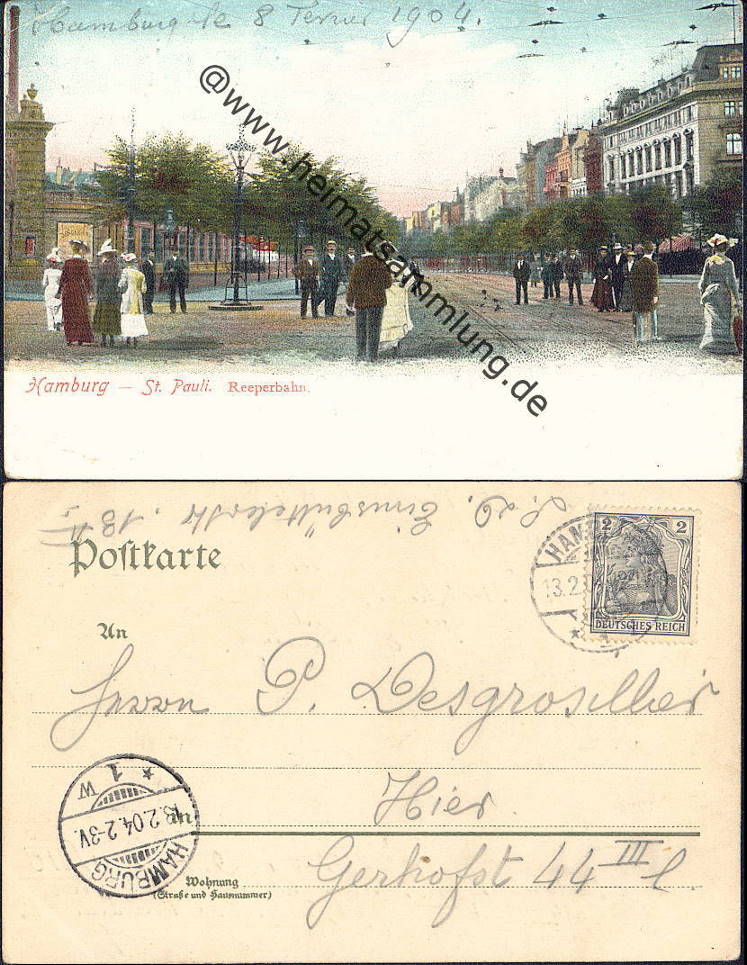 Hamburg de 8 Februar 1904.
@www.heimatsammlung.de
Hamburg — St. Pauli. Reeperbahn.
Eimsbüttelerstr. 13 II
Postkarte
2 2
DEUTSCHES REICH
HAM
13.2
An
Herrn P. Desgrosilhier
Hier
1 W
13.2.04.2-3V.
HAMBURG
in
Gerhofst 44 III l.
Wohnung
(Straße und Hausnummer)